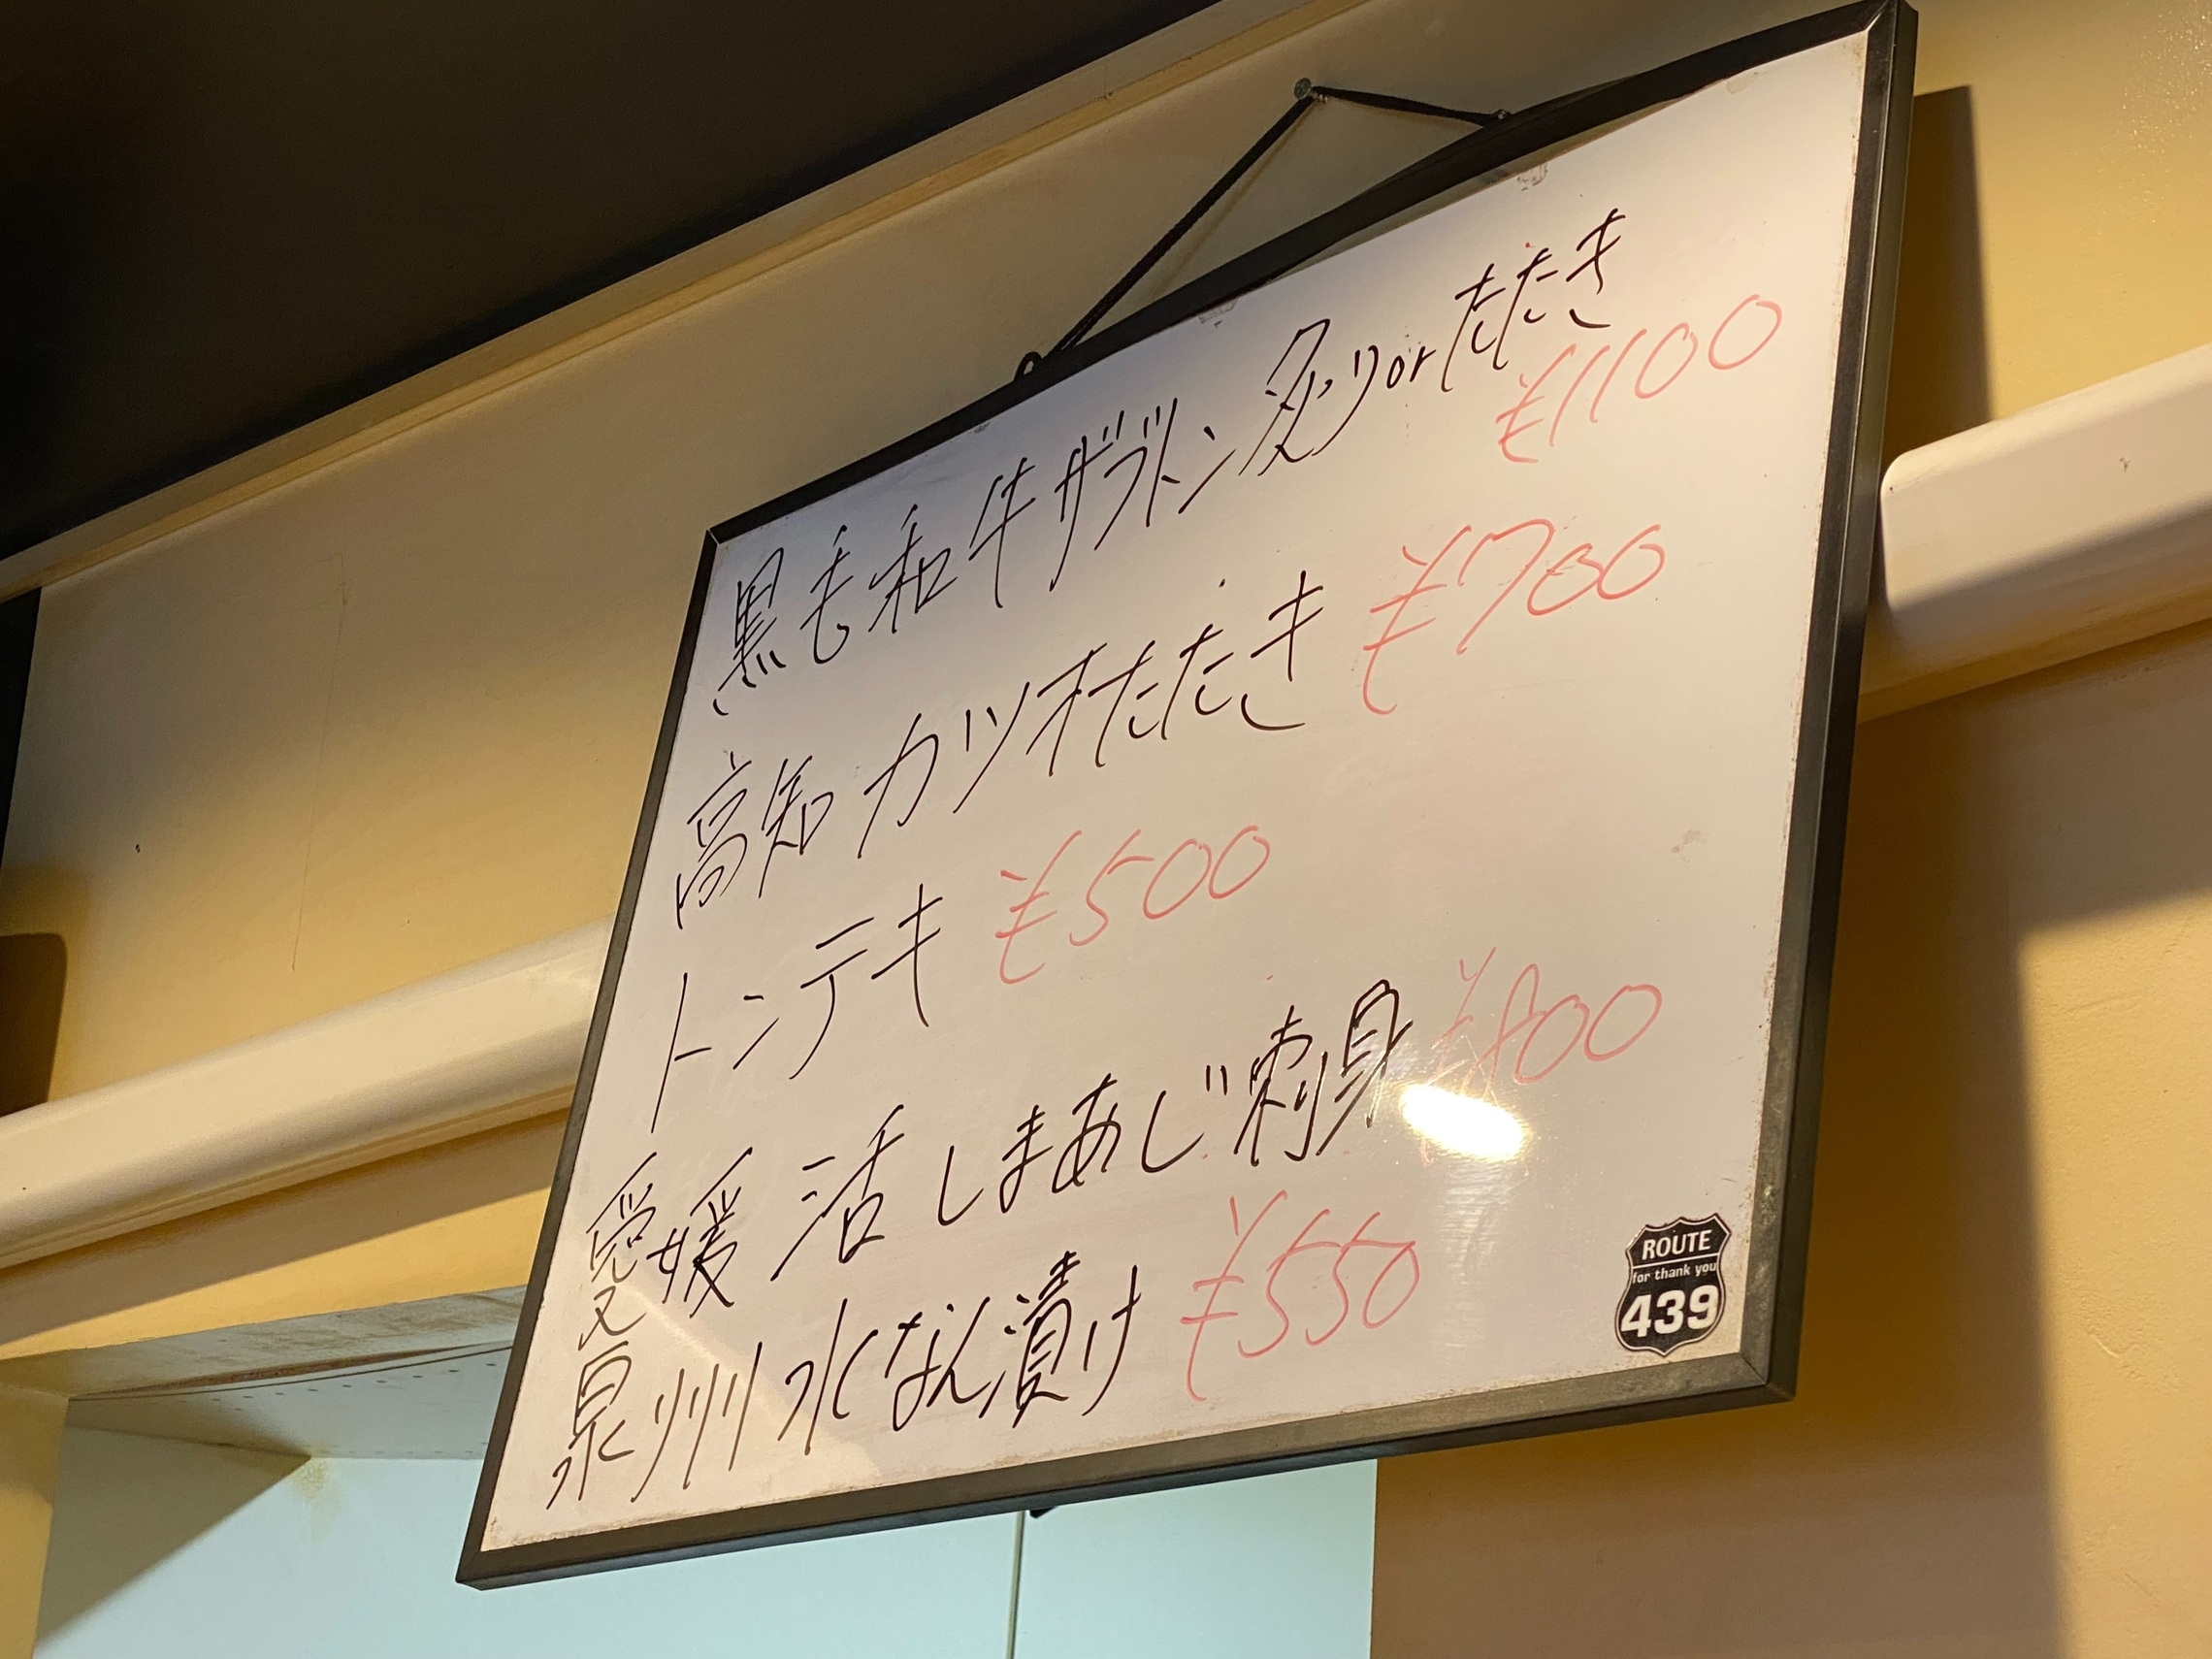 黒毛和牛ザブトン炙りorたたき
¥1100
高知 カツオたたき ¥700
トンテキ ¥500
愛媛 活 しまあじ刺身 ¥800
泉州水なす漬け ¥550
ROUTE
for thank you
439